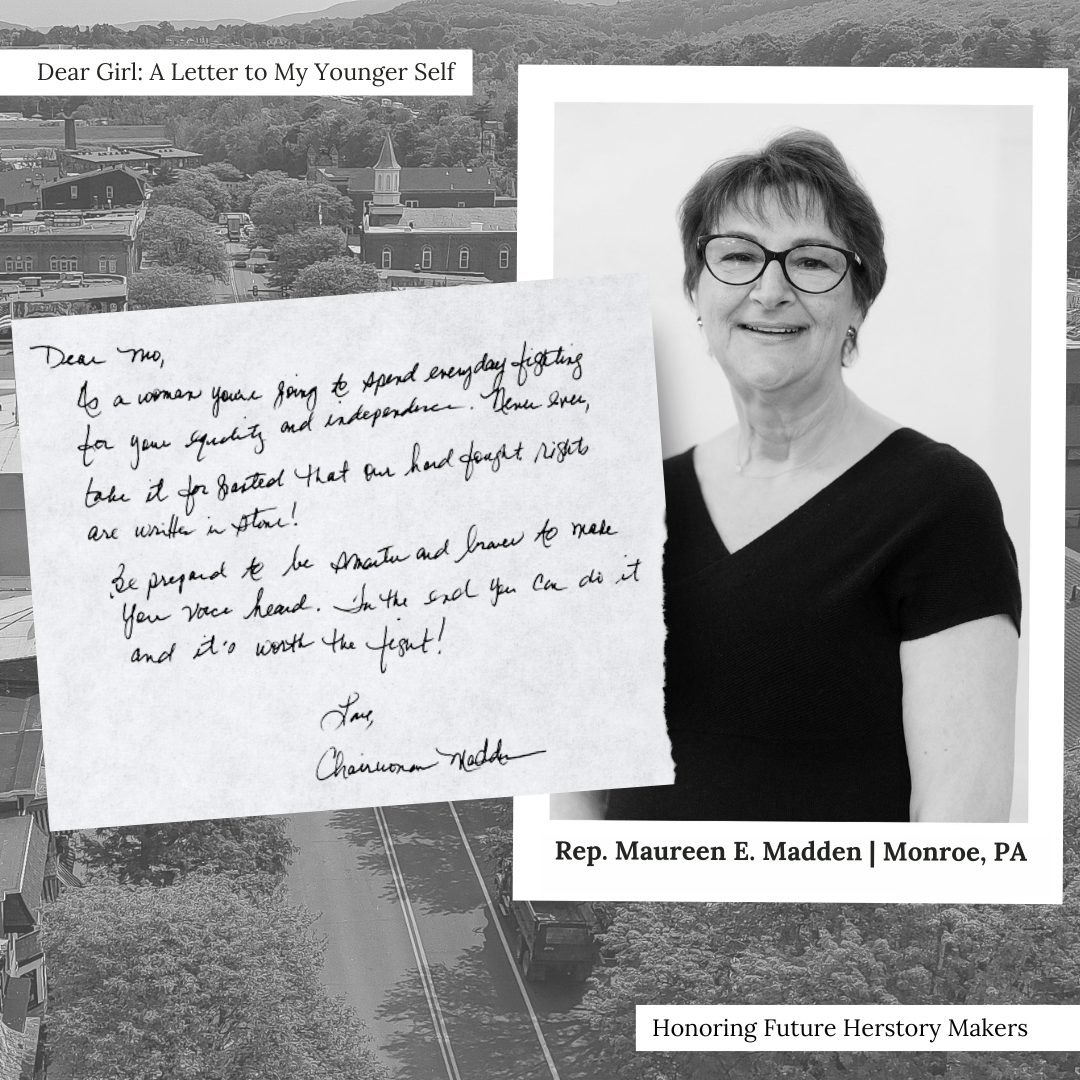 Dear Girl: A Letter to My Younger Self
Dear Mo,
As a woman you're going to spend everyday fighting
for your equality and independence. Never ever,
take it for granted that our hard fought rights
are written in stone!
Be prepared to be smarter and braver to make
your voice heard. In the end you can do it
and it's worth the fight!
Love,
Chairwoman Madden
Rep. Maureen E. Madden | Monroe, PA
Honoring Future Herstory Makers